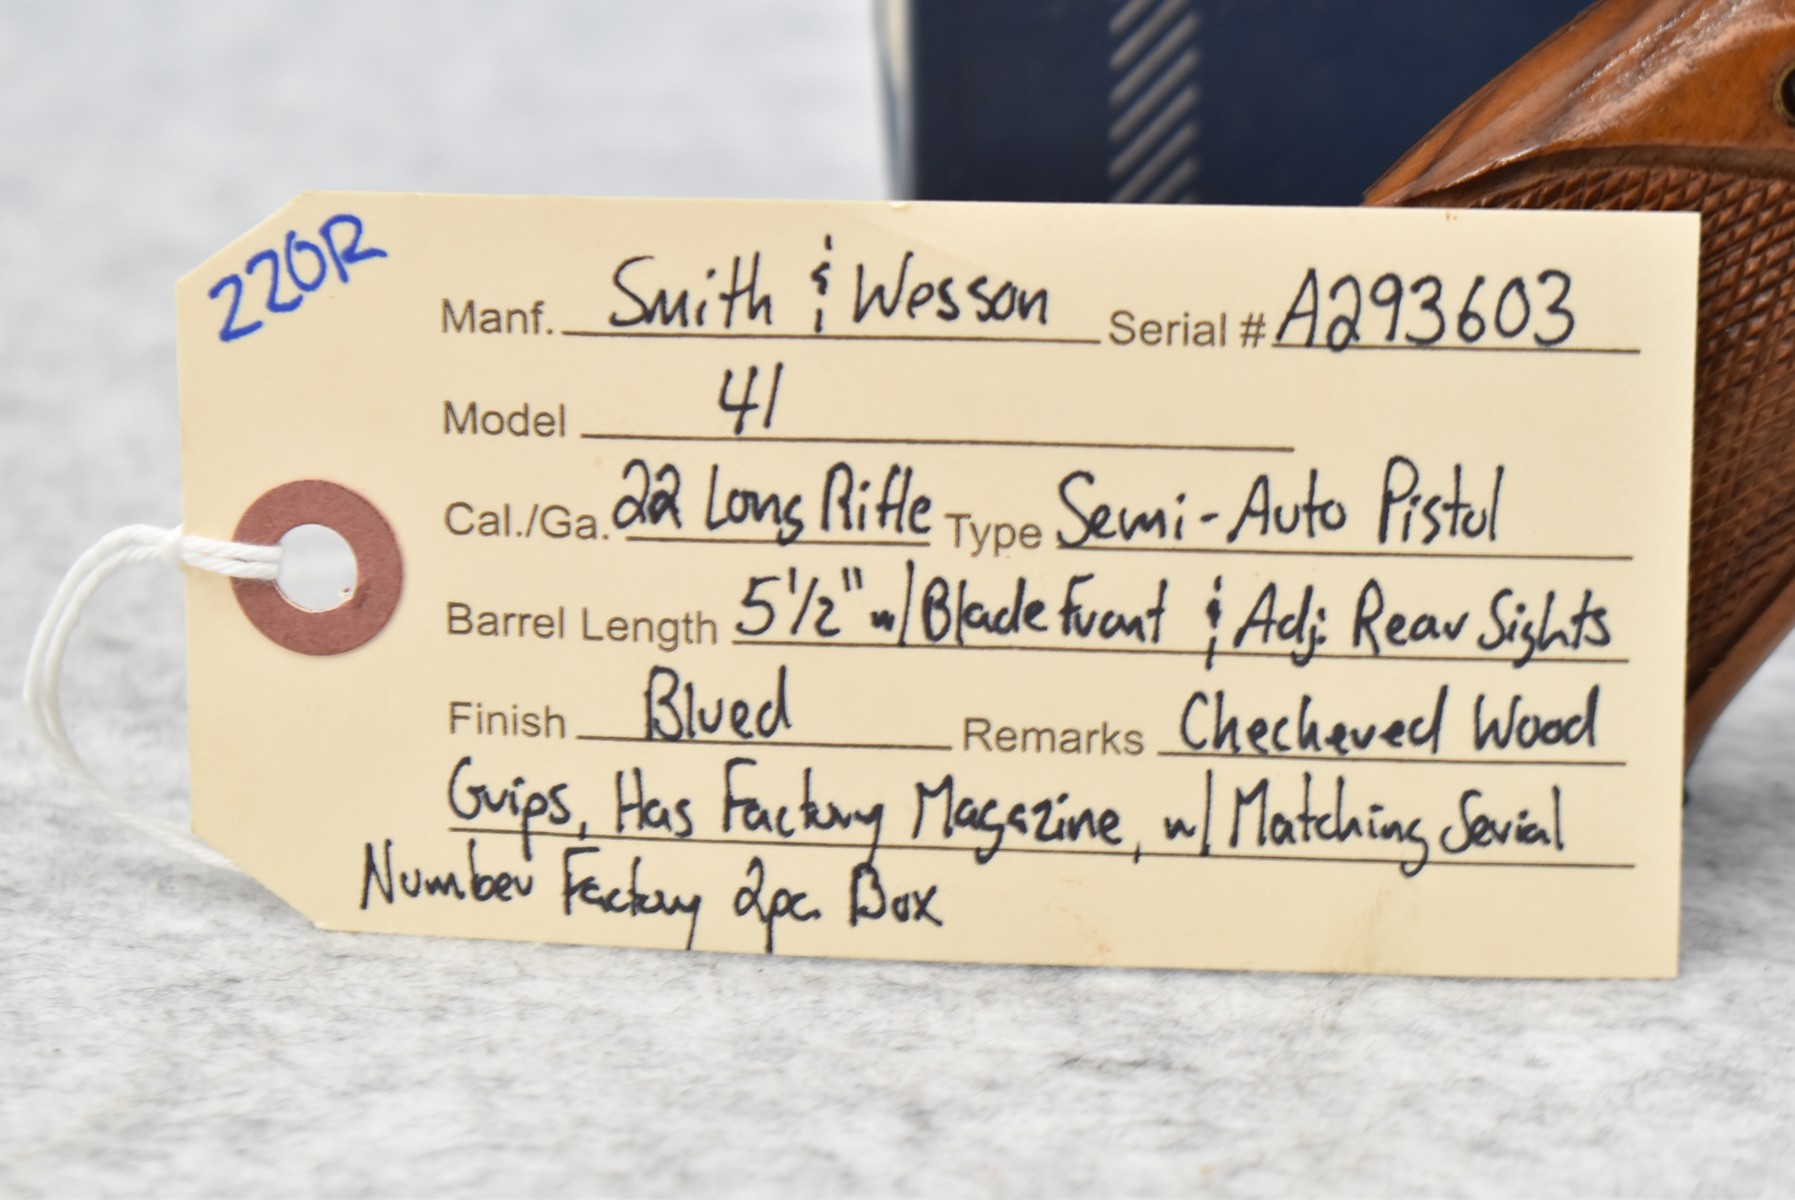 220R
Manf. Smith & Wesson Serial # A293603
Model 41
Cal./Ga. 22 Long Rifle Type Semi-Auto Pistol
Barrel Length 5 1/2" w/ Blade Front & Adj. Rear Sights
Finish Blued Remarks Checkered Wood
Grips, Has Factory Magazine, w/ Matching Serial
Number Factory 2pc. Box